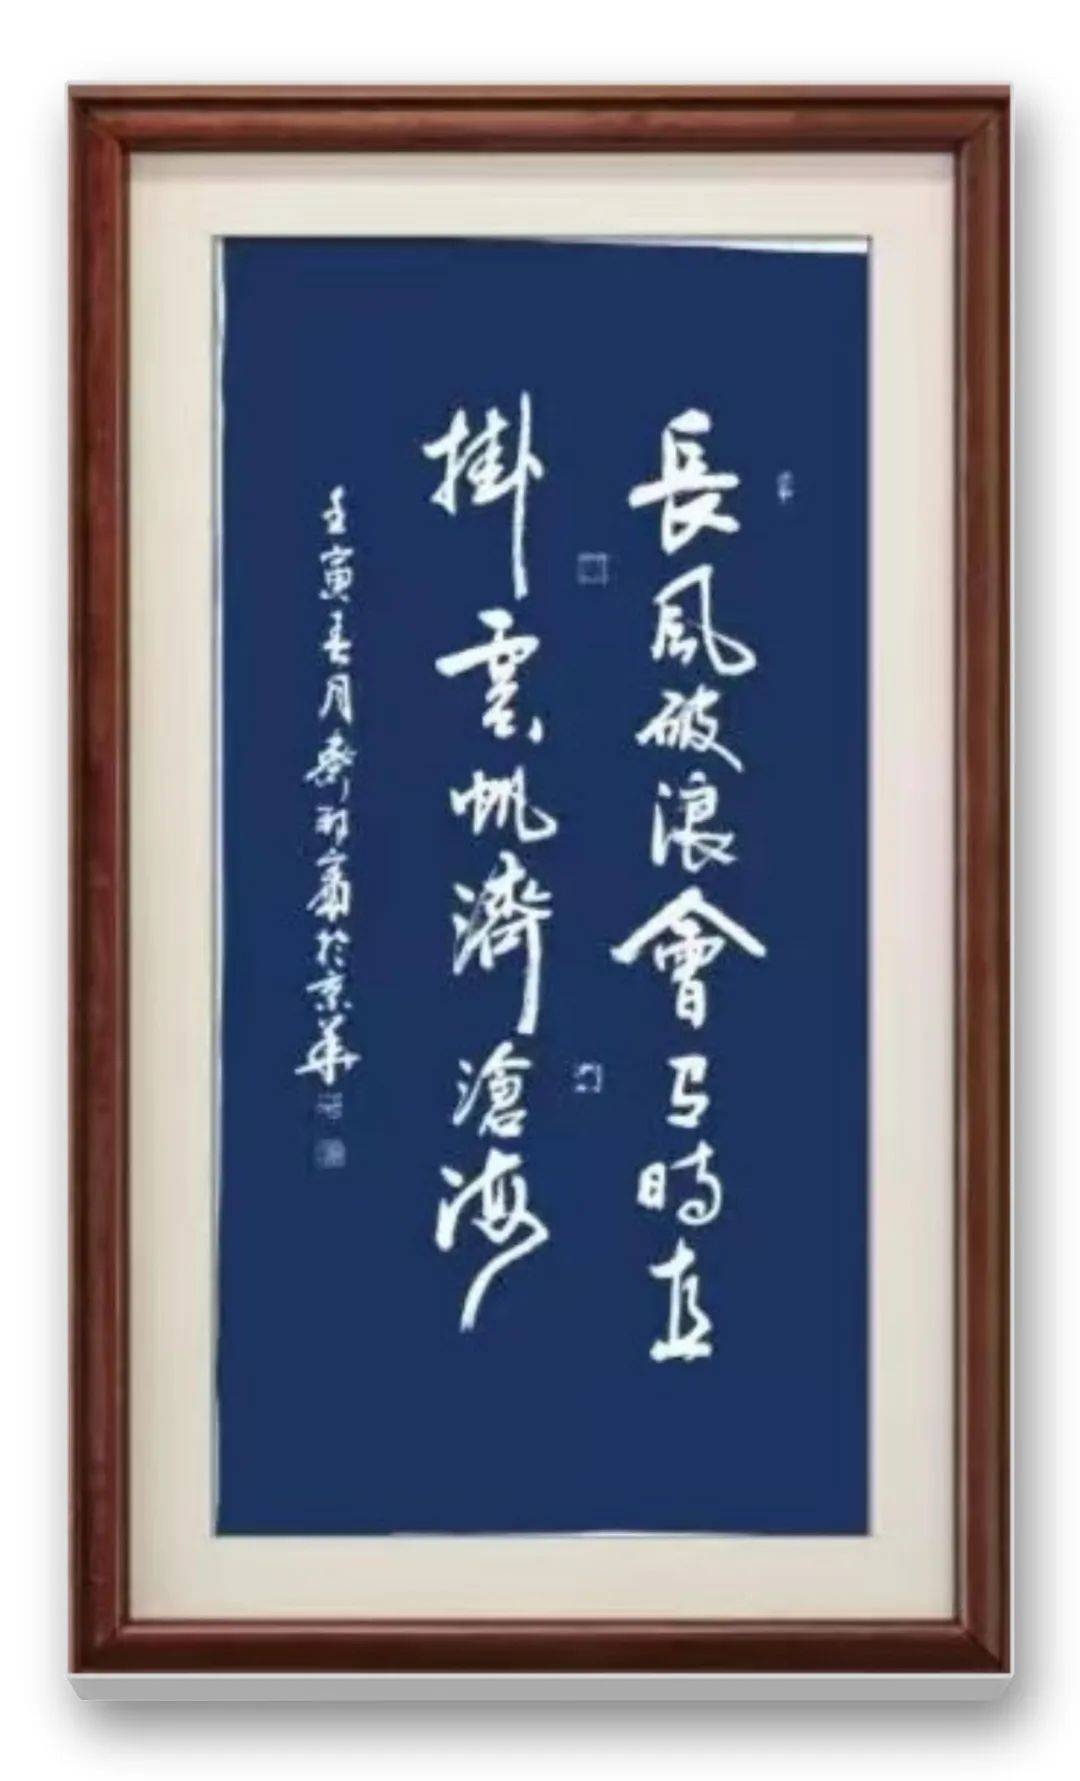 長風破浪會有時直
掛雲帆濟滄海
壬寅春月 於京華